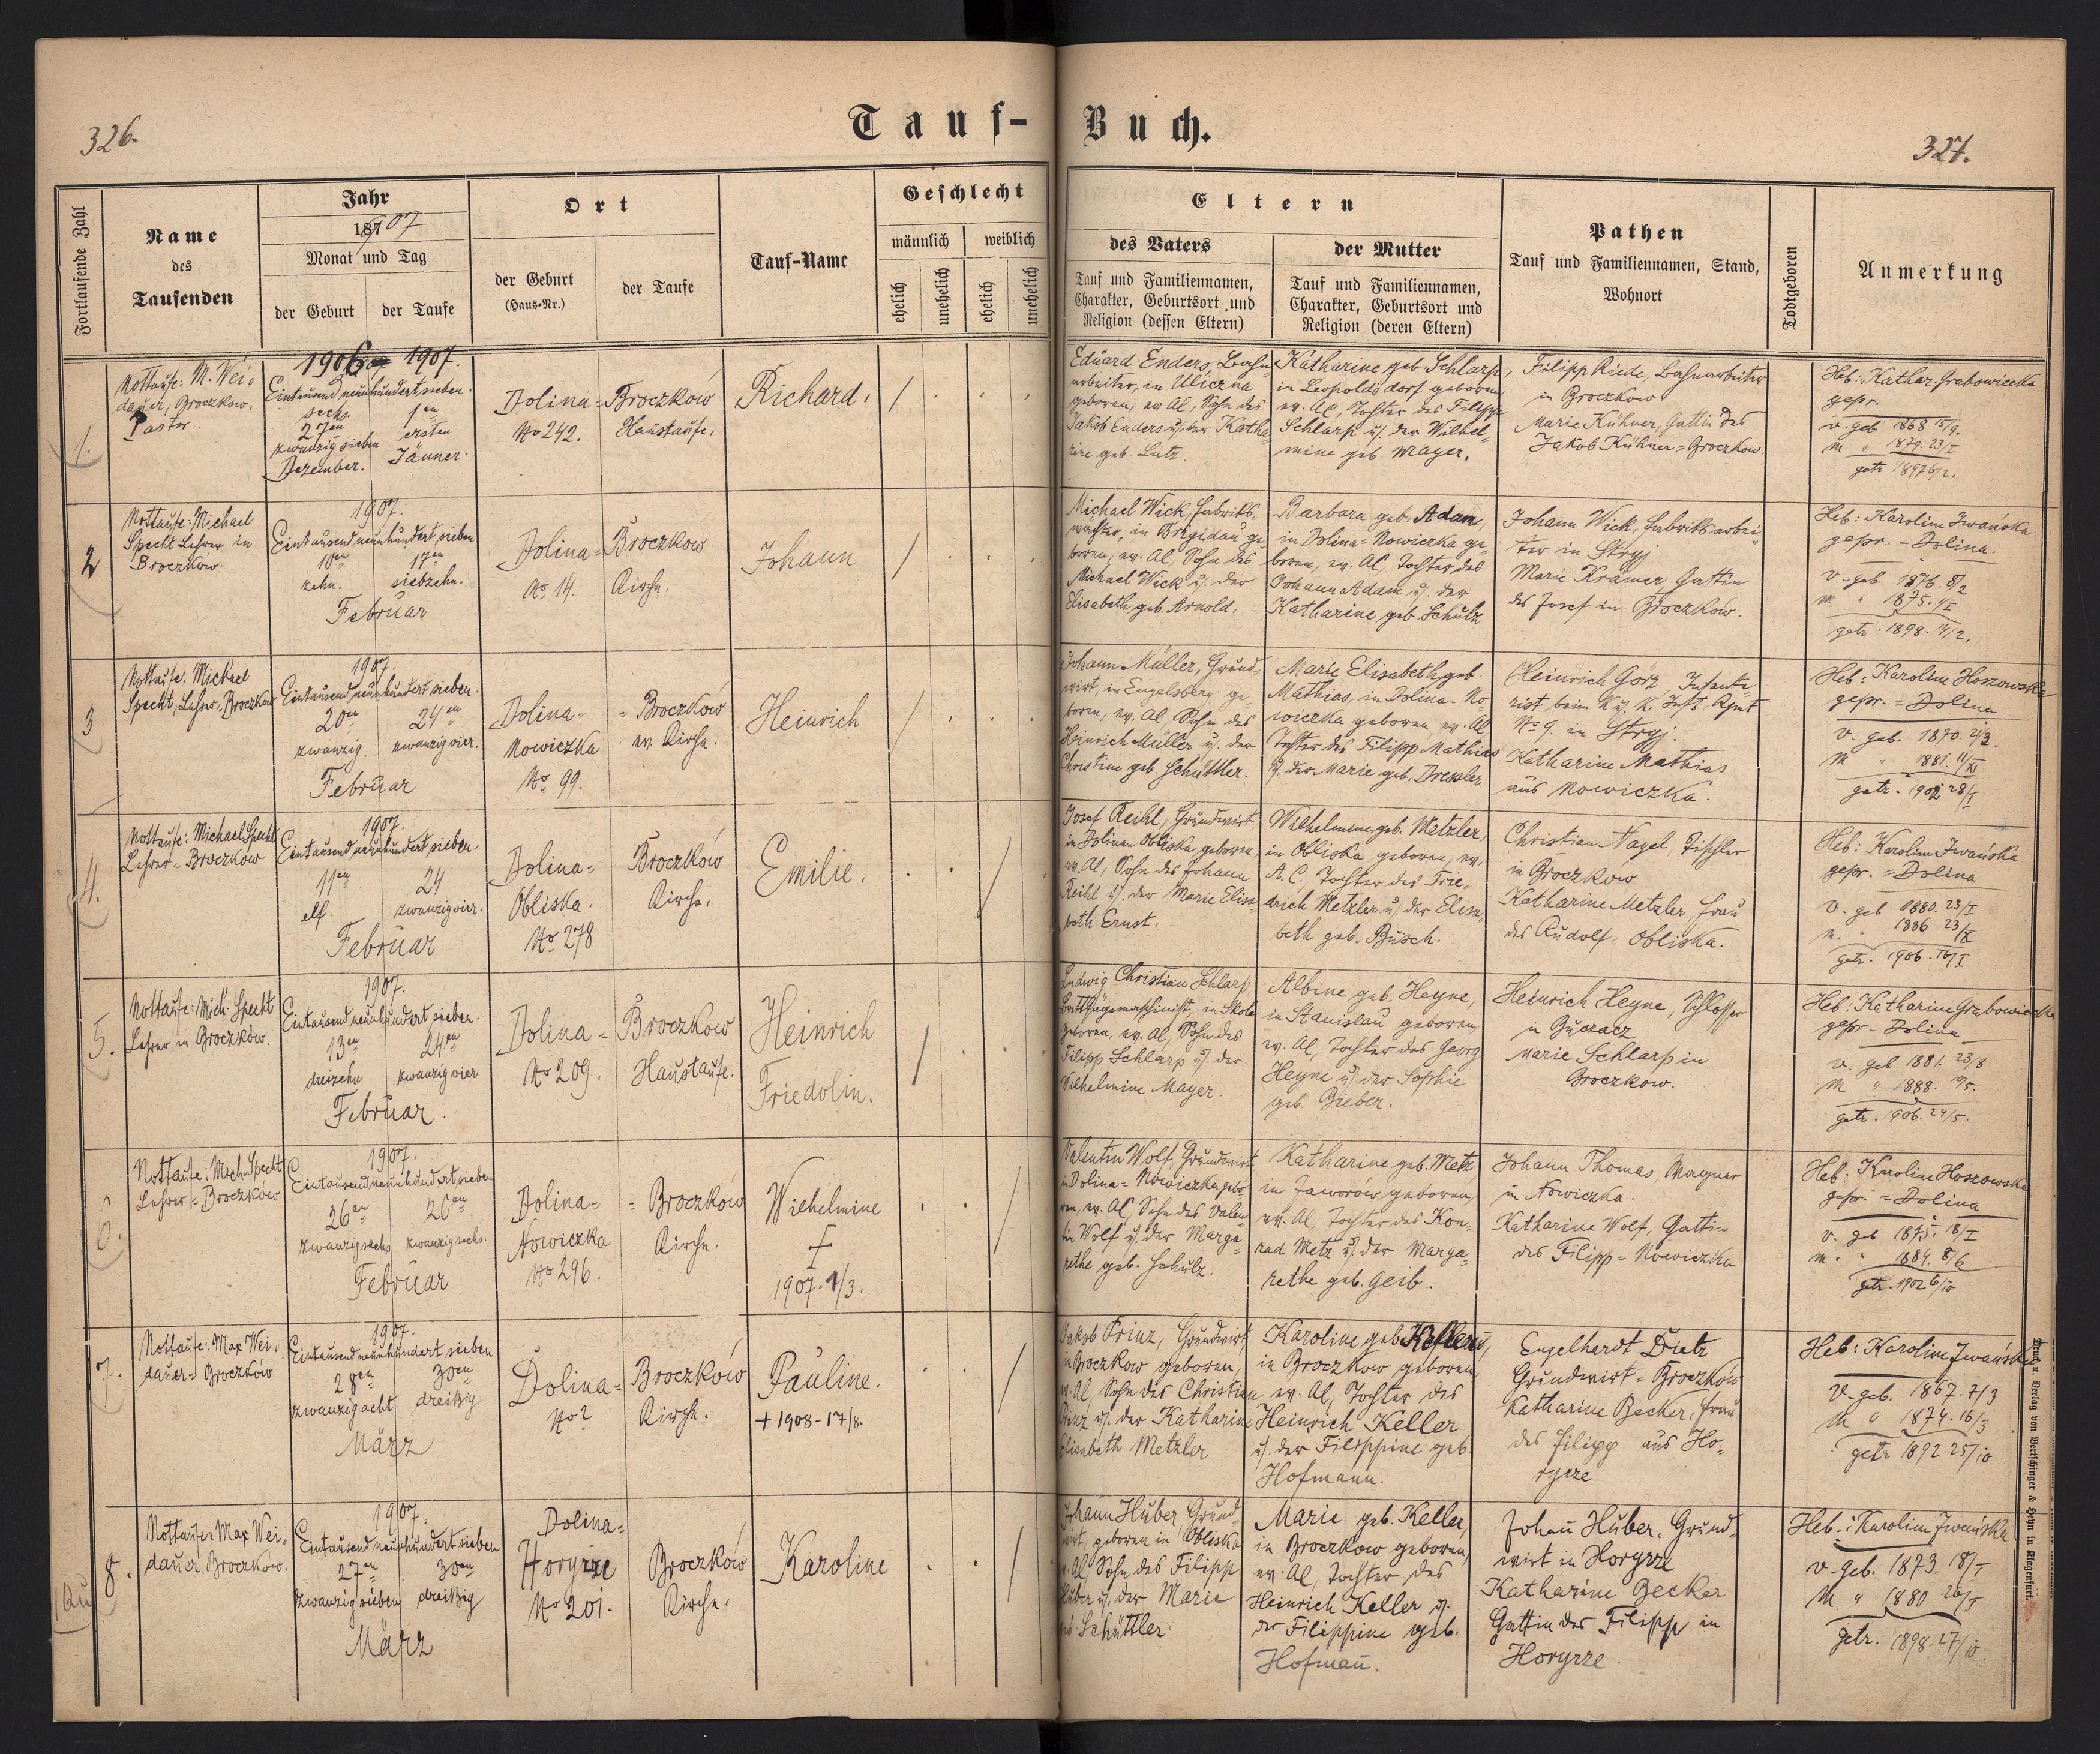 326.
Tauf-
Buch.
327.
Fortlaufende Zahl
Name
des
Taufenden
Jahr
1907
Monat und Tag
der Geburt
der Taufe
Ort
der Geburt
(Haus-Nr.)
der Taufe
Tauf-Name
Geschlecht
männlich
weiblich
ehelich
unehelich
ehelich
unehelich
Eltern
des Vaters
Tauf und Familiennamen,
Charakter, Geburtsort und
Religion (dessen Eltern)
der Mutter
Tauf und Familiennamen,
Charakter, Geburtsort und
Religion (deren Eltern)
Pathen
Tauf und Familiennamen, Stand,
Wohnort
Todtgeboren
Anmerkung
1.
Nottaufe: M. Wei-
dauer, Broczkow.
Pastor
1906 1907.
Eintausend neunhundert sieben.
sechs.
27en 1en
zwanzig sieben ersten
Dezember. Jänner.
Dolina=
No 242.
Broczków
Haustaufe.
Richard.
Eduard Enders, Bahn-
arbeiter, in Uliczna
geboren, ev. Al, Sohn des
Jakob Enders u. der Katha-
rine geb. Lutz.
Katharine geb. Schlarp,
in Leopoldsdorf geboren,
ev. Al, Tochter des Filipp
Schlarp u. der Wilhel-
mine geb. Mayer.
Filipp Riede, Bahnarbeiter
in Broczkow
Marie Kühner, Gattin des
Jakob Kühner = Broczkow.
Heb: Kathar. Grabowiecka
gepr.
v. geb 1868 15/9.
m " 1879. 23/I
getr 1897 6/2.
2
Nottaufe: Michael
Specht Lehrer in
Broczków.
1907.
Eintausend neunhundert sieben
10en 17en
zehn. siebzehn.
Februar
Dolina=
No 14.
Broczkow
Kirche.
Johann
Michael Wick, Fabriks-
wächter, in Brigidau ge-
boren, ev. Al, Sohn des
Michael Wick u. der
Elisabeth geb. Arnold.
Barbara geb. Adam,
in Dolina=Nowiczka ge-
boren, ev. Al, Tochter des
Johann Adam u. der
Katharine geb. Schulz
Johann Wick, Fabriksarbei-
ter in Stryj
Marie Krämer, Gattin
des Josef in Broczków.
Heb: Karoline Iwańska
gepr. - Dolina.
v. geb. 1876. 8/2
m " 1875.
getr. 1898. 14/2.
3
Nottaufe: Michael
Specht, Lehrer, Broczkow
1907.
Eintausend neunhundert sieben.
20en 24en
zwanzig. zwanzig vier.
Februar
Dolina-
Nowiczka
No 99.
= Broczków
ev. Kirche.
Heinrich
Johann Müller, Grund-
wirt, in Engelsberg ge-
boren, ev. Al, Sohn des
Heinrich Müller u. der
Christine geb. Schüttler.
Marie Elisabeth geb
Mathias, in Dolina-No-
wiczka geboren, ev. Al,
Tochter des Filipp Mathias
u. der Marie geb. Drexler
Heinrich Görz, Infante-
rist, beim K. u. K. Inft. Rgmt
No 9. in Stryj.
Katharine Mathias
aus Nowiczka.
Heb: Karoline Hoszowska
gepr. = Dolina
v. geb. 1870. 21/3.
m " 1881. 11/XI
getr. 1902 28/I
4.
Nottaufe: Michael Specht
Lehrer - Broczków
1907.
Eintausend neunhundert sieben.
11en 24
elf. zwanzig vier.
Februar
Dolina=
Obliska.
No 278
Broczków
Kirche.
Emilie.
Josef Reihl, Grundwirt
in Dolina Obliska geboren,
ev. Al, Sohn des Johann
Reihl u. der Marie Elisa-
beth Ernst.
Wilhelmine geb. Metzler,
in Obliska geboren, ev.
A. C, Tochter des Frie-
drich Metzler u. der Elisa-
beth geb. Busch.
Christian Nagel, Tischler
in Broczkow
Katharine Metzler, Frau
des Rudolf - Obliska.
Heb: Karoline Iwańska
gepr. = Dolina
v. geb 1880. 23/I
m. " 1886 23/IX
getr. 1906. 16/I
5.
Nottaufe: Mich. Specht
Lehrer in Broczków.
1907.
Eintausend neunhundert sieben.
13en 24en
dreizehn zwanzig vier
Februar.
Dolina=
No 209.
Broczkow
Haustaufe.
Heinrich
Friedolin.
Ludwig Christian Schlarp,
Brettsägemaschinist, in Skole
geboren, ev. Al, Sohn des
Filipp Schlarp u. der
Wilhelmine Mayer.
Albine geb. Heyne,
in Stanislau geboren,
ev. Al, Tochter des Georg
Heyne u. der Sophie
geb. Bieber.
Heinrich Heyne, Schlosser
in Buczacz
Marie Schlarp in
Broczkow.
Heb: Katharine Grabowiecka
gepr - Dolina
v. geb 1881. 23/8
m " 1888. 19/5.
getr. 1906. 24/5.
6.
Nottaufe: Mich. Specht
Lehrer = Broczków
1907.
Eintausend neunhundert sieben
26en 26en
zwanzig sechs zwanzig sechs.
Februar
Dolina=
Nowiczka
No 296.
= Broczków
Kirche.
Wilhelmine
†
1907. 1/3.
Valentin Wolf, Grundwirt
in Dolina=Nowiczka gebo-
ren, ev. Al, Sohn des Valen-
tin Wolf u. der Marga-
rethe geb. Schulz.
Katharine geb. Metz
in Jaworów geboren,
ev. Al, Tochter des Kon-
rad Metz u. der Marga-
rethe geb. Geib.
Johann Thomas, Wagner
in Nowiczka.
Katharine Wolf, Gattin
des Filipp = Nowiczka
Heb: Karoline Hoszowska
gepr. = Dolina
v. geb 1875. 18/I
m. " 1884. 8/6
getr. 1902 6/10
7.
Nottaufe: Max Wei-
dauer = Broczków
1907.
Eintausend neunhundert sieben
28en 30en
zwanzig acht dreißig
März
Dolina=
No ?
Broczków
Kirche.
Pauline.
+ 1908 - 17/8.
Jakob Prinz, Grundwirt
in Broczkow geboren,
ev. Al, Sohn des Christian
Prinz u. der Katharine
Elisabeth Metzler
Karoline geb. Keller,
in Broczkow geboren,
ev. Al, Tochter des
Heinrich Keller
u. der Filippine geb.
Hofmann.
Engelhardt Dietz
Grundwirt = Broczkow
Katharine Becker, Frau
des Filipp aus Ho-
ryrze
Heb: Karoline Iwańska
v. geb. 1867. 7/3
m " 1874. 16/3
getr 1892 25/10
8.
Nottaufe: Max Wei-
dauer, Broczkow.
1907.
Eintausend neunhundert sieben
27en 30en
zwanzig sieben dreißig
März
Dolina=
Horyrze
No 201.
Broczków
Kirche.
Karoline
Johann Huber, Grund-
wirt, geboren in Obliska
ev. Al, Sohn des Filipp
Huber u. der Marie
geb. Schüttler
Marie geb. Keller,
in Broczkow geboren,
ev. Al, Tochter des
Heinrich Keller u.
der Filippine geb.
Hofmann.
Johann Huber, Grund-
wirt in Horyrze
Katharine Becker
Gattin des Filipp in
Horyrze
Heb.: Karoline Iwańska
v. geb. 1873. 18/I
m " 1880 26/I
getr. 1898. 27/10.
Druck u. Verlag von Bertschinger & Heyn in Klagenfurt.